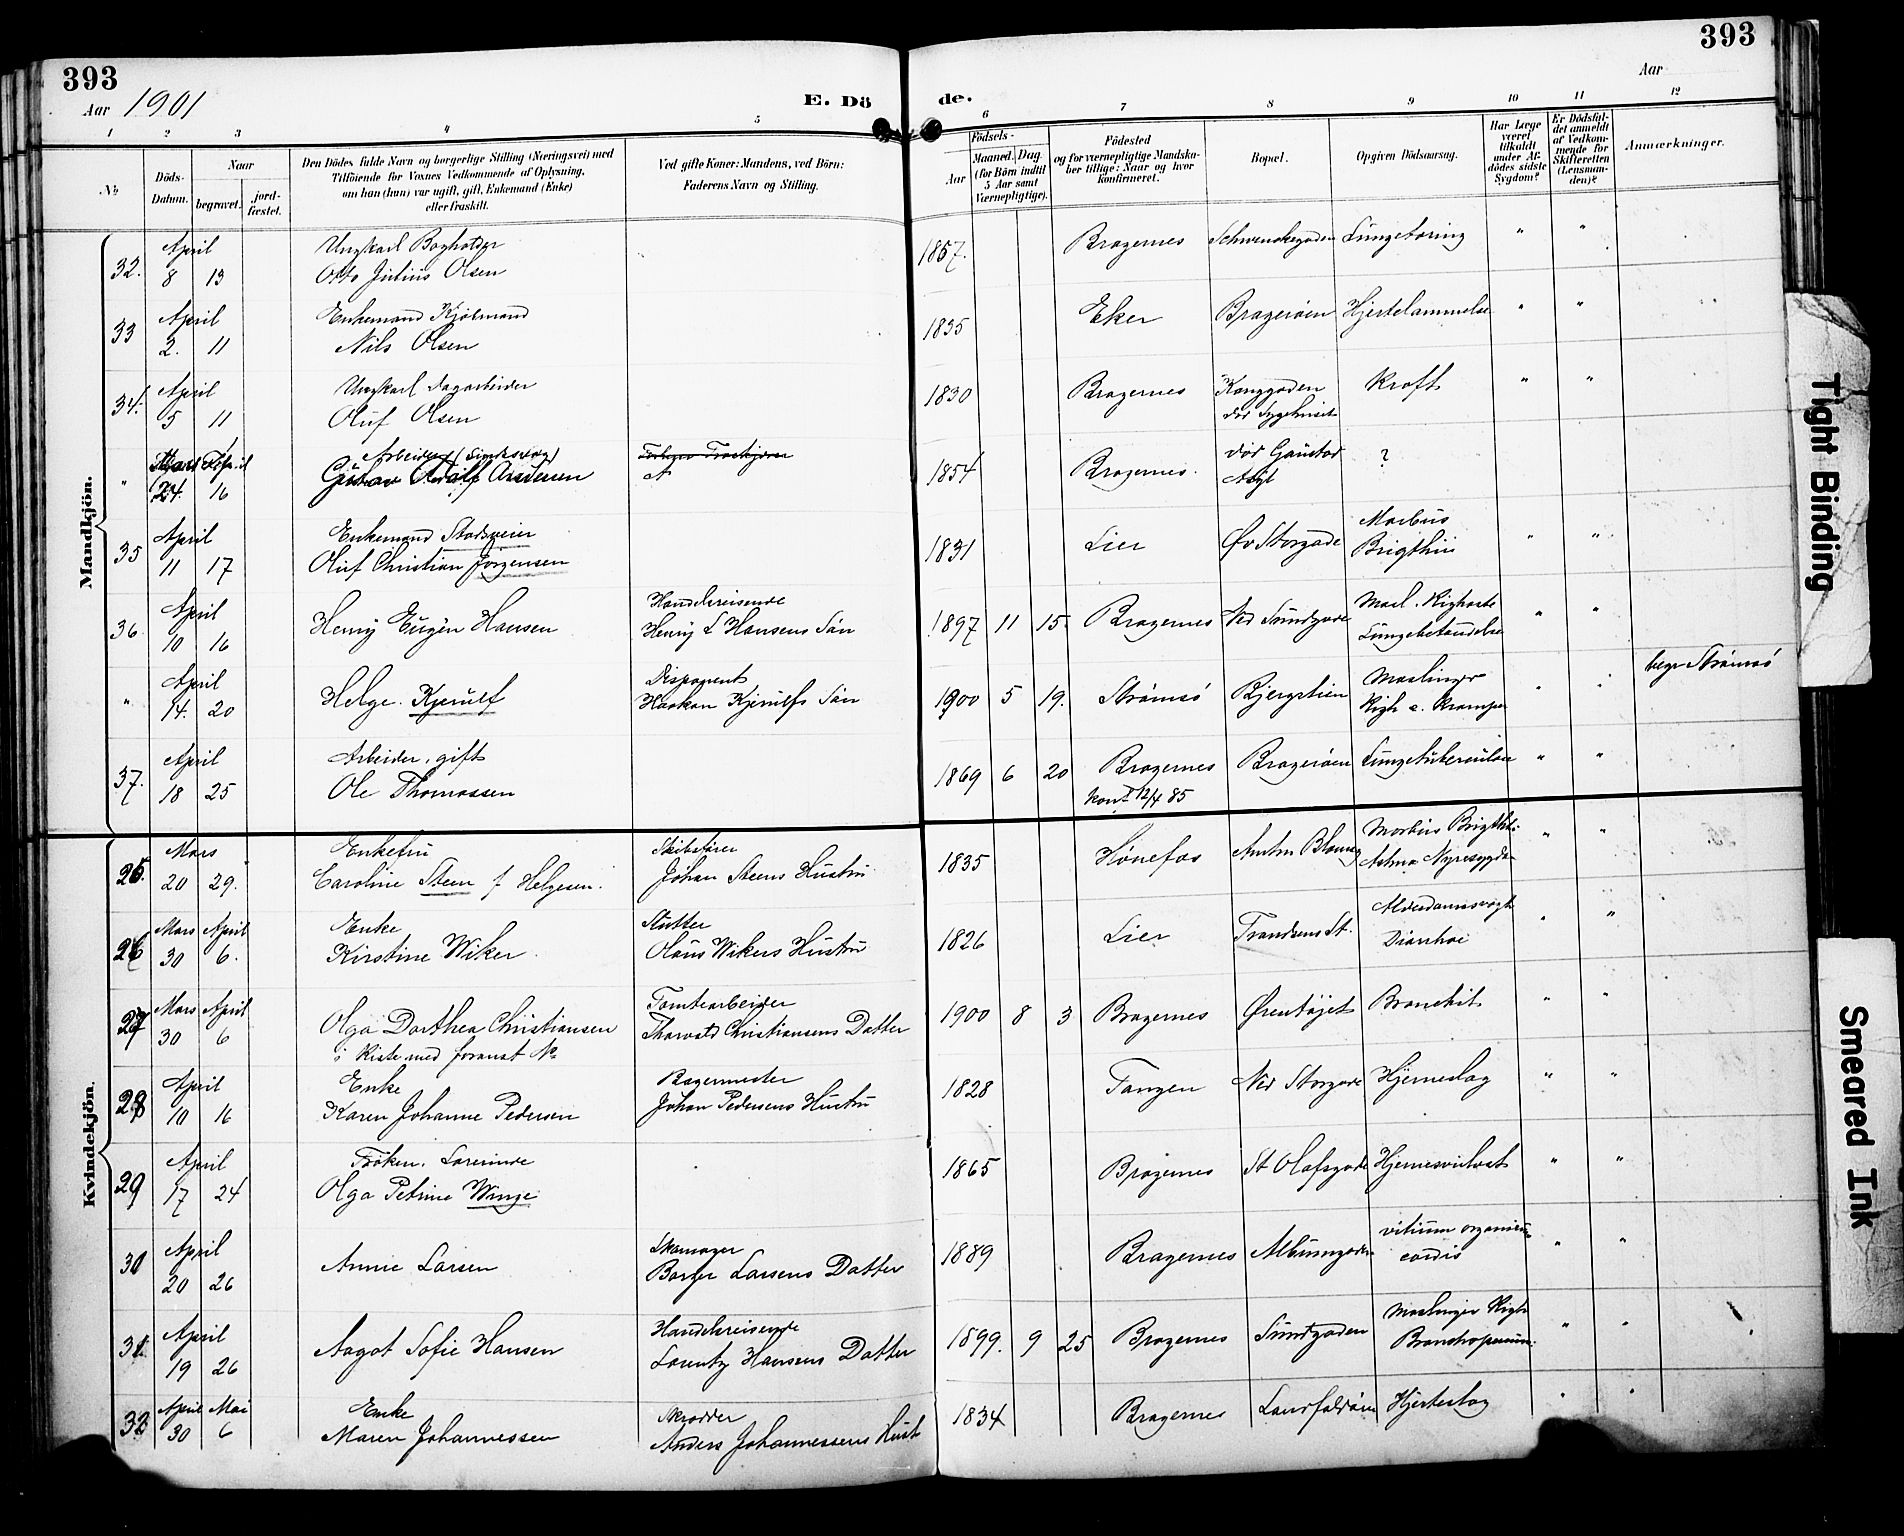 393
393
Aar 1901
E. Döde.
Aar
1 2 3 4 5 6 7 8 9 10 11 12
No
Döds-Datum.
Naar
begravet.
jord-fæstet.
Den Dödes fulde Navn og borgerlige Stilling (Næringsvei) med
Tilföiende for Voxnes Vedkommende af Oplysning,
om han (hun) var ugift, gift, Enkemand (Enke)
eller fraskilt.
Ved gifte Koner: Mandens, ved Börn:
Faderens Navn og Stilling.
Födsels-
Aar
Maaned. Dag
(for Börn indtil
5 Aar samt
Værnepligtige).
Födested
og for værnepligtige Mandska-
ber tillige: Naar og hvor
konfirmeret.
Bopæl.
Opgiven Dödsaarsag.
Har Læge
været
tilkaldt
under Af-
dödes sidste
Sygdom?
Er Dödsfal-
det anmeldt
af Vedkom-
mende for
Skifteretten
(Lensman-
den)?
Anmærkninger.
Mandkjön.
April Ungkarl Bogholder
32. 8 13 Otto Julius Olsen 1857. Bragernes Schwenckegaden Lungetæring " "
April Enkemand Kjøbmand
33 2. 11 Nils Olsen 1835 Eker Bragerøen Hjertelammelse " "
April Ungkarl Dagarbeider
34. 5 11 Oluf Olsen 1830 Bragernes Konggaden Kræft " "
død Sygehuset
Mars April Arbeider
" 24. 16 Gustav Adolf Andersen 1854 Bragernes. død Gaustad ?
Asyl
April Enkemand Stadsveier Morbus
35 11 17 Oluf Christian Jörgensen 1831 Lier Øv Storgade Brigthii " "
April Handelsreisende
36 10 16 Henry Eugèn Hansen Henry L Hansens Sön 1897 11 15. Bragernes Ned Sundgade Lungebetændelse " "
April Disponent Maslinger begr Strömsö
" 14. 20 Helge Kjerulf Haakon Kjerulfs Sön 1900 5 19. Strömsö Bjergstien Kigh. o. Kramper " "
April Arbeider, gift
37. 18 25 Ole Thomassen 1869 6 20 Bragernes Bragerøen Lungetuberkulose " "
konf 12/4 85
Kvindekjön.
Mars Enkefru Skibsfører Morbus Brigthii
25. 20 29. Caroline Steen f Helgesen. Johan Steens Hustru 1835 Hønefos Astma Nyresygdom " "
Mars April Enke Alderdomssvagh
26 30 6. Kirstine Wiker Olaus Wikers Hustru 1826 Lier Frandsens St. Diarrhoe " "
Mars April Tomtearbeider
27 30 6 Olga Dorthea Christiansen Thorvald Christiansens Datter 1900 8 3 Bragernes Ørentöjet Bronchit " "
i Kiste med foranst No
April Enke Bagermester
28 10 16 Karen Johanne Pedersen Johan Pedersens Hustru 1828 Tangen Ned Storgade Hjerneslag " "
April Frøken. Lærerinde
29 17 24 Olga Petrine Winge 1865 Bragernes St Olafsgade " "
April Skomager vitium organicum
30 20 26 Annie Larsen Larsens Datter 1889 Bragernes Albumgaden cordis " "
April Handelsreisende Maslinger Kigh
31. 19 26 Aagot Sofie Hansen Lorentz Hansens Datter 1899. 9 25 Bragernes Sundgaden Bronchopneum. " "
April Mai Enke Skrædder
32 30 6 Maren Johannessen Anders Johannessens Hust 1834 Bragernes Landfaldöen Hjerteslag " "
Tight Binding
Smeared Ink